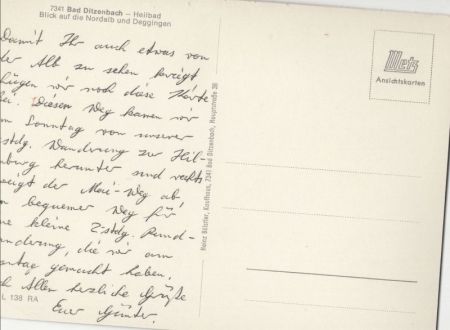 7341 Bad Ditzenbach – Heilbad
Blick auf die Nordalb und Deggingen
Damit Ihr auch etwas von
der Alb zu sehen kriegt
fügen wir noch diese Karte
bei. Diesen Weg kamen wir
am Sonntag von unserer
stdg. Wanderung zur Hil-
burg herunter und rechts
zeigt der Mai-Weg ab,
bequemer Weg für
ne kleine 2 stdg. Rund-
nderung, die wir am
ntag gemacht haben.
ch Allen herzliche Grüße
Euer Günter.
L 138 RA
Heinz Bölstler, Kaufhaus, 7341 Bad Ditzenbach, Hauptstraße 36
Metz
Ansichtskarten